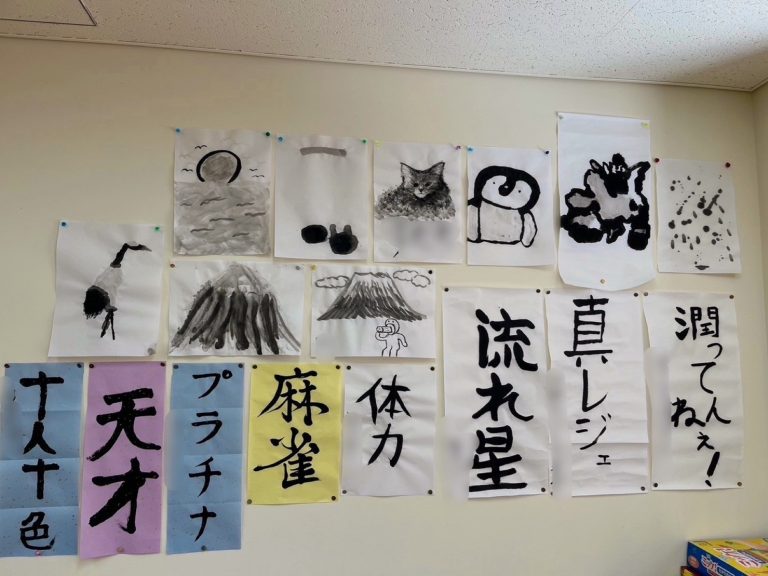 十人十色
天才
プラチナ
麻雀
体力
流れ星
真レジェ
潤ってんねぇ!